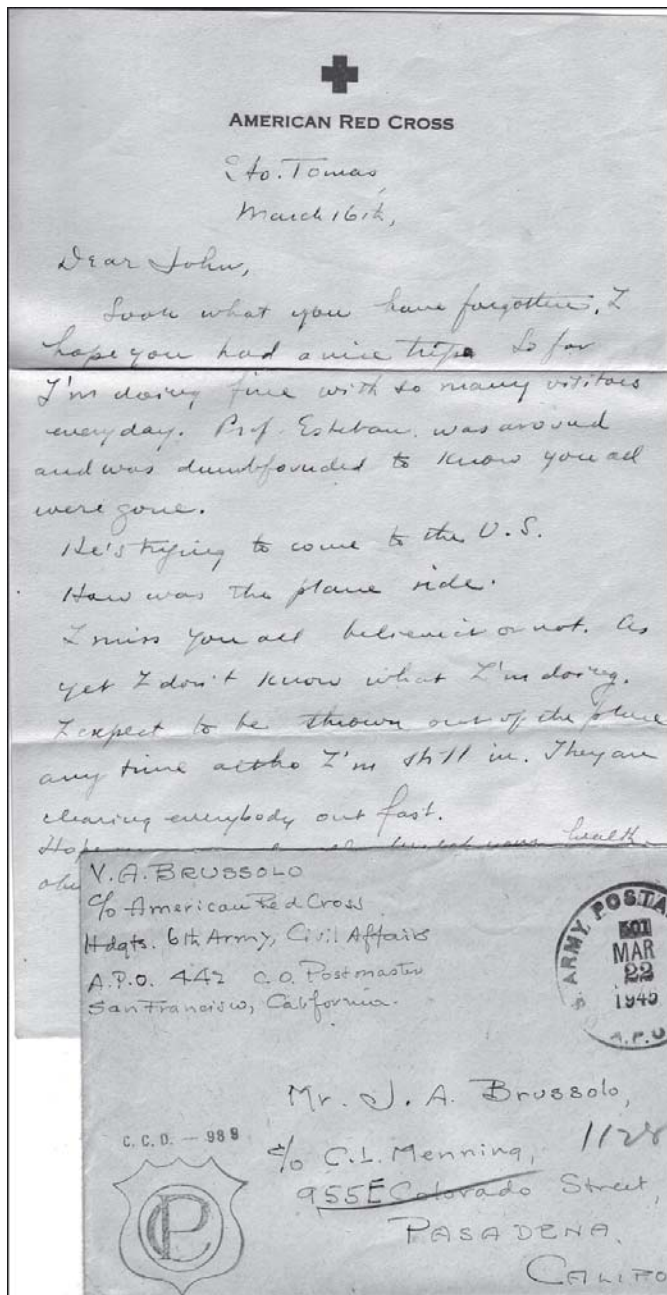 AMERICAN RED CROSS
Sto. Tomas,
March 16th,
Dear John,
Look what you have forgotten. I
hope you had a nice trip. So far
I'm doing fine with so many visitors
everyday. Prof. Esteban was around
and was dumbfounded to know you all
were gone.
He's trying to come to the U.S.
How was the plane ride.
I miss you all believe it or not. As
yet I don't know what I'm doing.
I expect to be thrown out of the place
any time altho I'm still in. They are
clearing everybody out fast.
Hope health
V. A. BRUSSOLO
c/o American Red Cross
Hdqts. 6th Army, Civil Affairs
A.P.O. 442 C.O. Postmaster
San Francisco, California.
ARMY POSTA
MAR
22
1945
A.P.O
Mr. J. A. Brussolo,
c/o C.L. Menning, 1128
955 E Colorado Street,
PASADENA.
CALIFO
C.C.D. — 988
CP